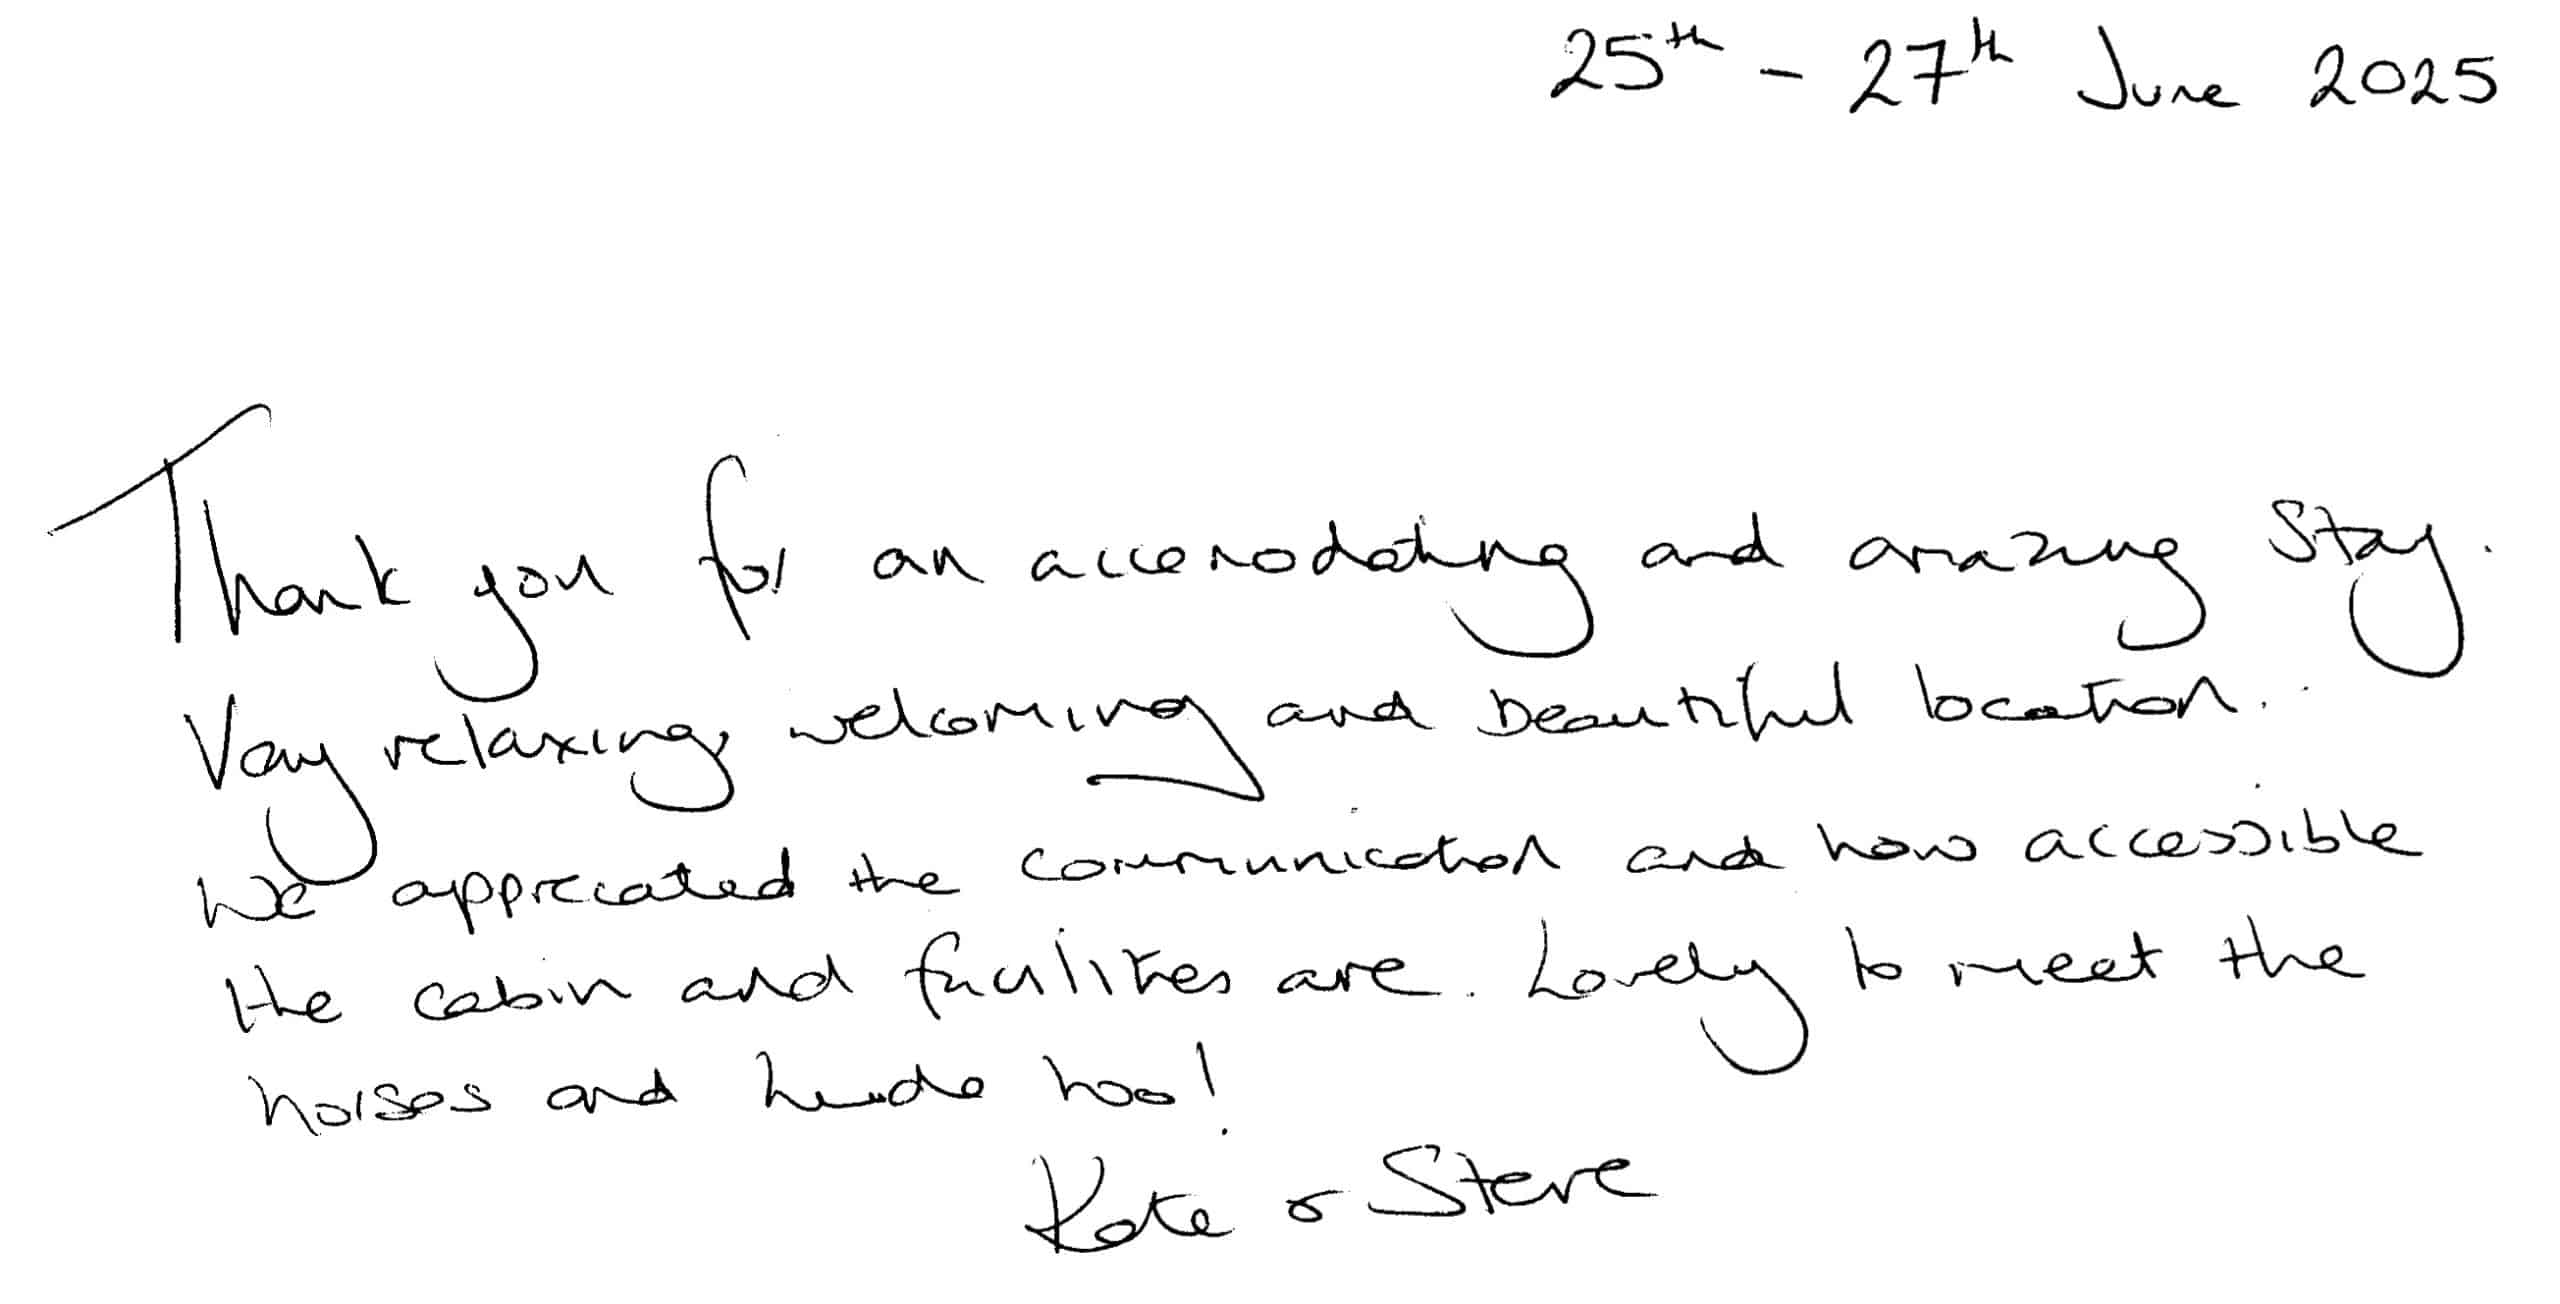 25th - 27th June 2025
Thank you for an accomodating and amazing stay.
Very relaxing, welcoming and beautiful location.
We appreciated the communication and how accessible
the cabin and facilities are. Lovely to meet the
horses and too!
Kate & Steve